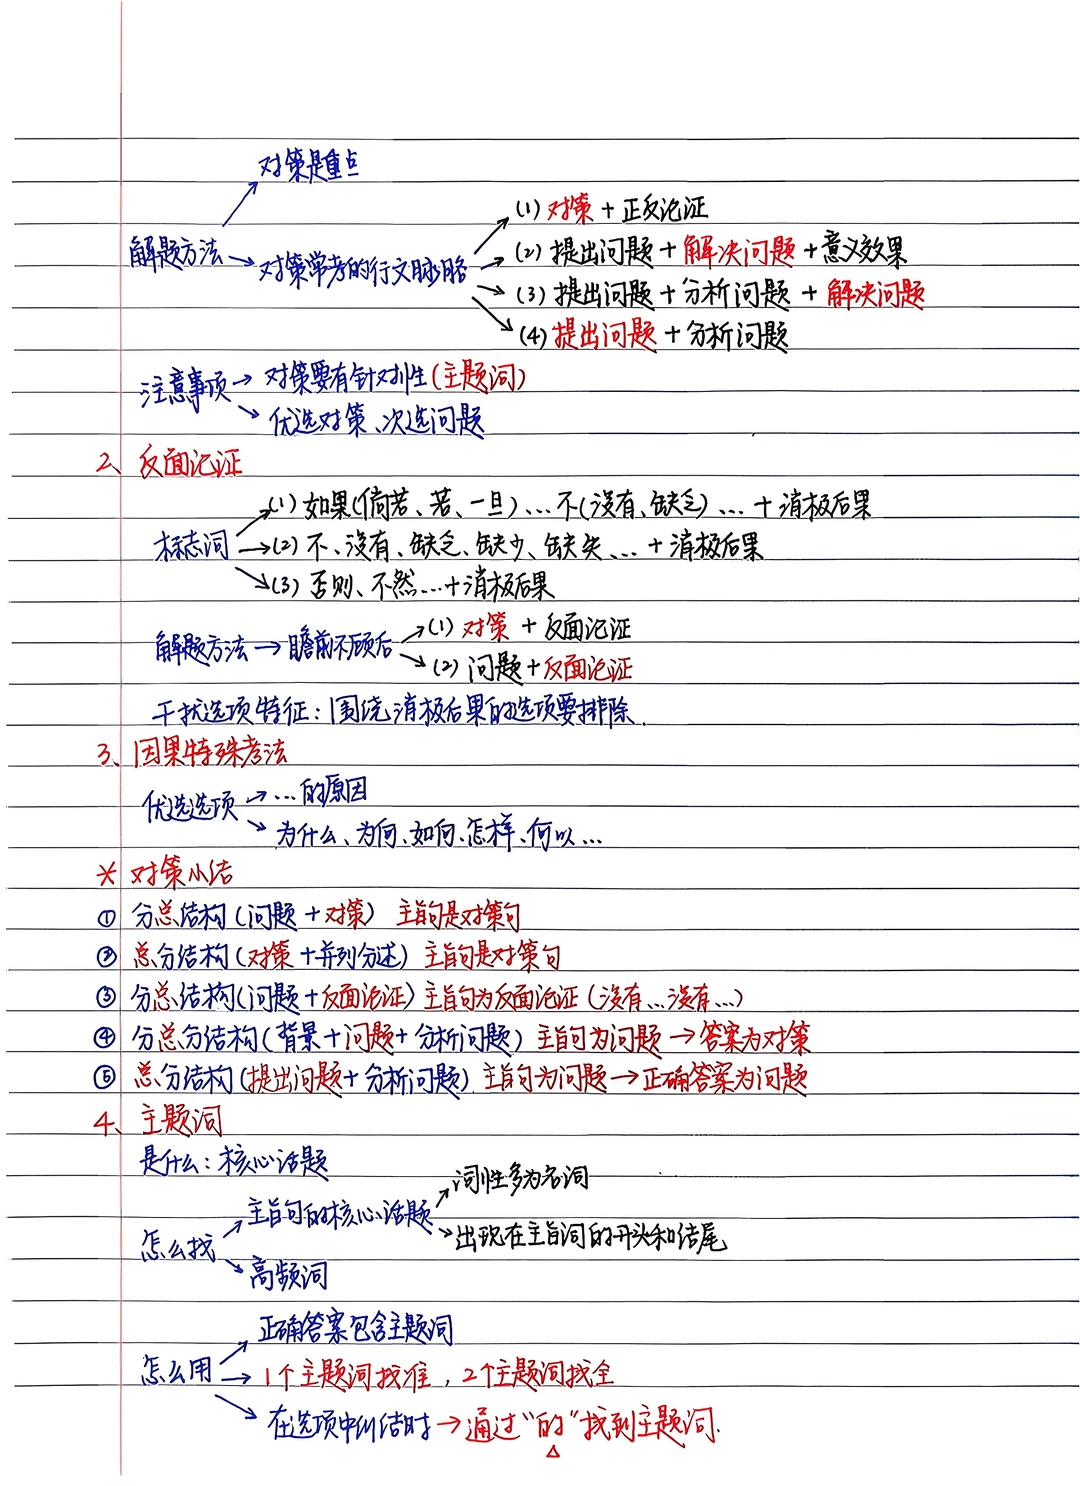 对策是重点
解题方法→对策常考的行文脉胳
(1) 对策 + 正反论证
(2) 提出问题 + 解决问题 + 意义效果
(3) 提出问题 + 分析问题 + 解决问题
(4) 提出问题 + 分析问题
注意事项→对策要有针对性(主题词)
优选对策、次选问题
2、反面论证
标志词
(1) 如果(倘若、若、一旦)…不(没有、缺乏)… + 消极后果
(2) 不、没有、缺乏、缺少、缺失… + 消极后果
(3) 否则、不然…+消极后果
解题方法→瞻前不顾后
(1) 对策 + 反面论证
(2) 问题+反面论证
干扰选项特征:围绕消极后果的选项要排除.
3、因果特殊考法
优选选项→…的原因
为什么、为何、如何、怎样、何以…
* 对策小结
① 分总结构(问题 + 对策) 主旨句是对策句
② 总分结构(对策 + 并列分述) 主旨句是对策句
③ 分总结构(问题+反面论证) 主旨句为反面论证 (没有…没有…)
④ 分总分结构(背景+问题+分析问题) 主旨句为问题→答案为对策
⑤ 总分结构(提出问题+分析问题) 主旨句为问题→正确答案为问题
4、主题词
是什么:核心话题
怎么找
主旨句的核心话题
词性多为名词
出现在主旨词的开头和结尾
高频词
正确答案包含主题词
怎么用→1个主题词找准,2个主题词找全
在选项中纠结时→通过"的"找到主题词.